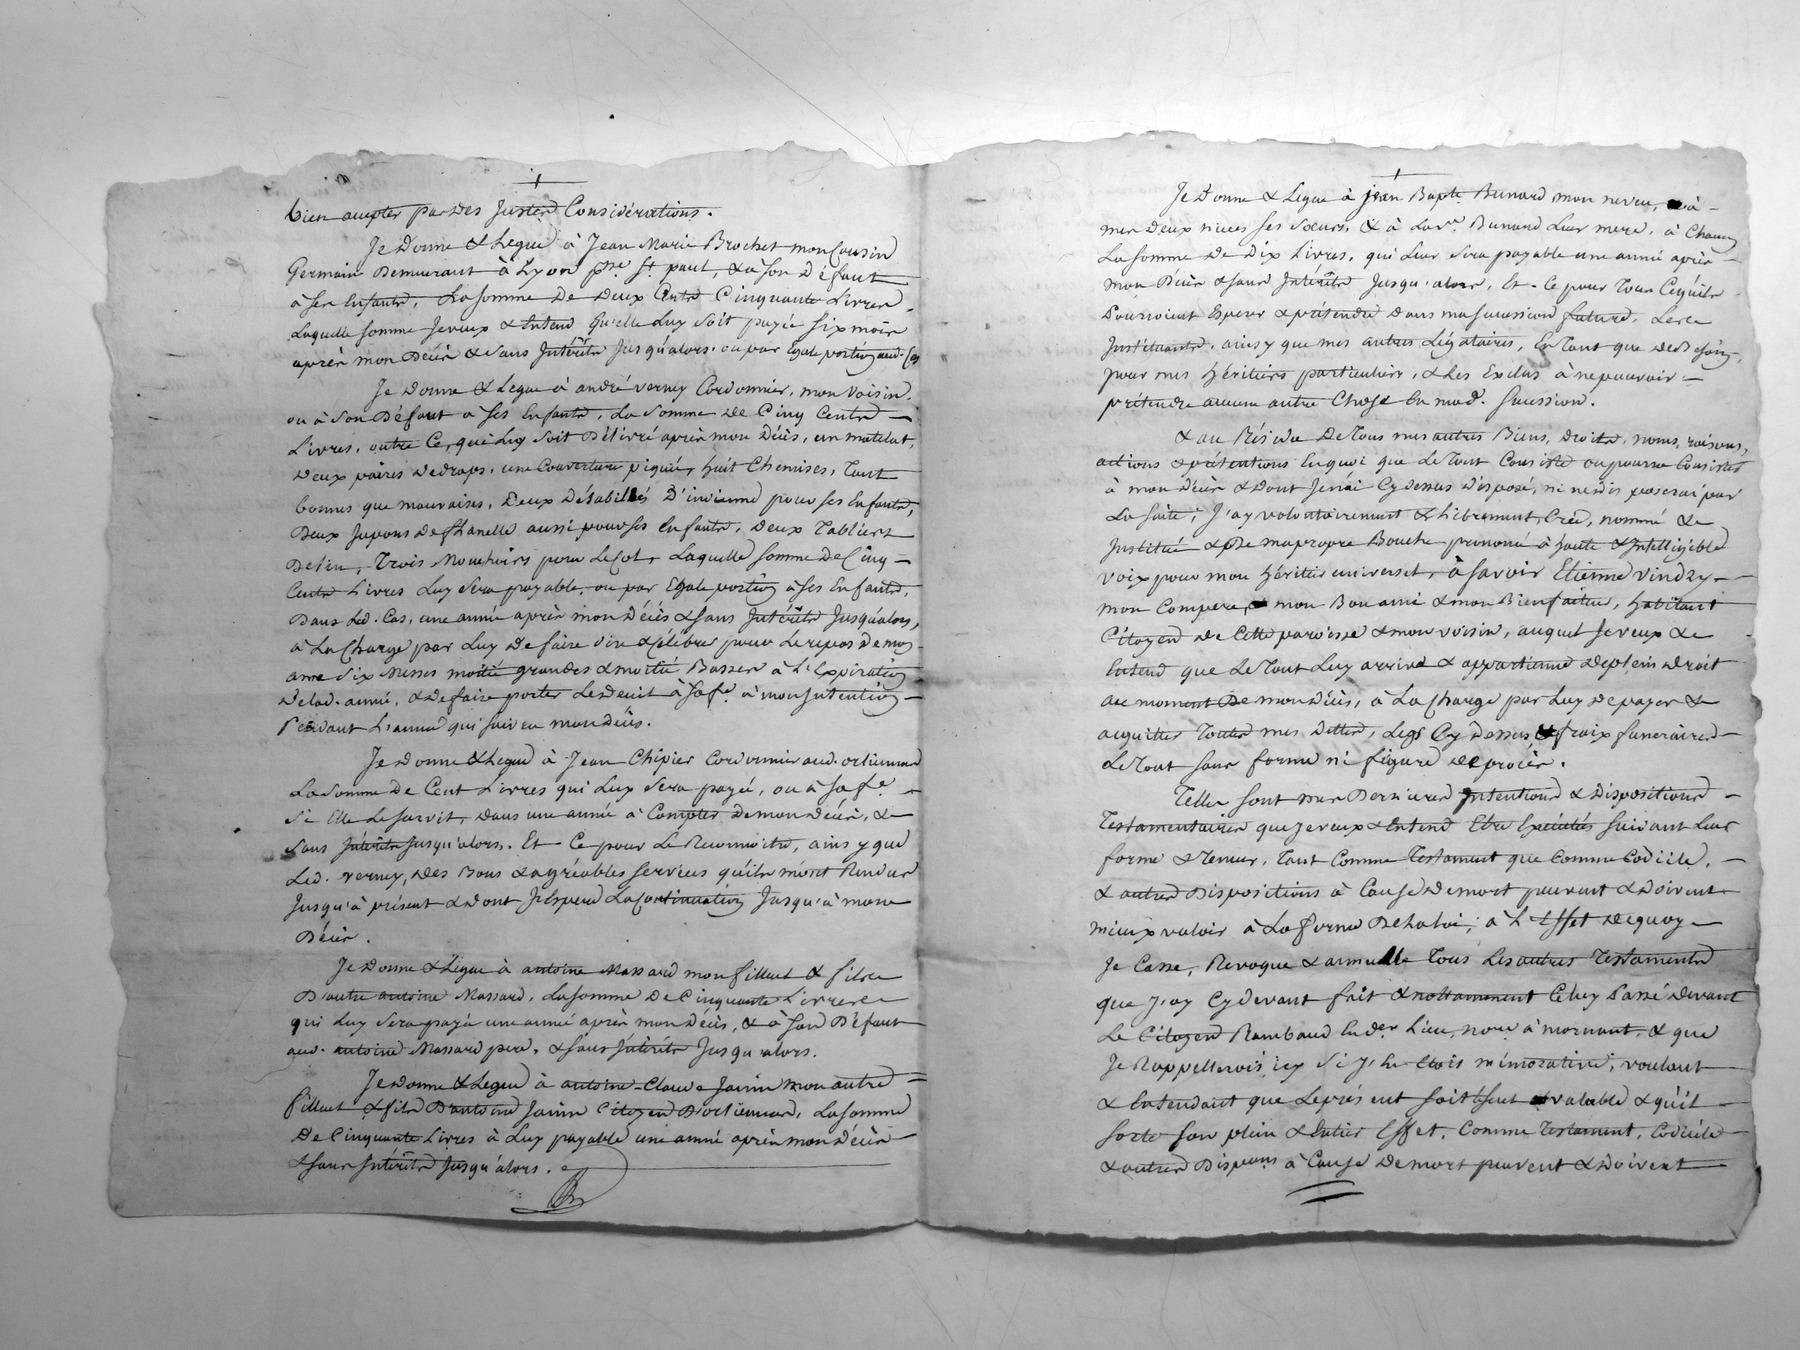 bien accepter par des Justes Considérations.
Je Donne & Legue à Jean Marie Brochet mon Cousin
Germain Demeurant à Lyon psse St. paul, & à son Défaut
à ses Enfants, La somme De Deux Cents Cinquante Livres,
Laquelle somme Je veux & Entend Qu'elle Luy soit payée six mois
après mon Décès & sans Intérêts Jusqu'alors. ou par Egale portion aud. Cas
Je Donne & Legue à andré verney Cordonnier, mon voisin.
ou à son Défaut à ses Enfants, La somme de Cinq Cents
Livres, outre Ce, que Luy soit Délivré après mon Décès, un matelat,
Deux paires de draps, une Couverture piquée, huit Chemises, Tant
bonnes que mauvaises, Deux Désabillés D'indienne pour ses Enfants,
Deux Jupons De flanelle aussi pour ses Enfants, Deux Tabliers
De lin, Trois Mouchoirs pour Le Col, Laquelle somme De Cinq
Cents Livres Luy sera payable, ou par Egale portion à ses Enfants,
Dans Led. Cas, une année après mon Décès & sans Intérêts Jusqu'alors,
à La Charge par Luy De faire dire & Célébrer pour Le repos De mon
ame six Messes moitié grandes & moitié Basses à L'Expiration
De lad. année, & De faire porter Le Deuil à sa fe. à mon Intention
Pendant L'année qui suivra mon Décès.
Je Donne & Legue à Jean Chipier Cordonnier aud. orlienas
La somme De Cent Livres qui Luy sera payée, ou à sa fe.
si Elle Le survit, Dans une année à Compter De mon Décès, &
sans Intérêts Jusqu'alors. Et Ce pour Le Reconnoitre, ainsy que
Led. verney, Des Bons & agréables services qu'ils m'ont Rendus
Jusqu'à présent & Dont J'Espere La Continuation Jusqu'à mon
Décès.
Je Donne & Legue à antoine Massard mon filleul & fils
D'autre antoine Massard, La somme De Cinquante Livres
qui Luy sera payée une année après mon Décès, & à son Défaut
aud. antoine Massard pere, & sans Intérêts Jusqu'alors.
Je Donne & Legue à antoine-Claude Janin mon autre
filleul & fils D'antoine Janin Citoyen D'orlienas, La somme
De Cinquante Livres à Luy payable une année après mon Décès
& sans Intérêts Jusqu'alors.
Je Donne & Legue à jean Bapte. Bunard mon neveu, à
mes Deux nieces ses sœurs, & à La ve. Bunard Leur mere, à Chacun
La somme De Dix Livres, qui Leur sera payable une année après
mon Décès & sans Intérêts Jusqu'alors, Et Ce pour Tous Ce qu'ils
Pourroient Esperer & prétendre Dans ma succession future, Les
Instituants, ainsy que mes autres Légataires, En Tant que De Besoin,
pour mes héritiers particuliers, & Les Exclus à ne pouvoir
prétendre aucune autre Chose En mad. succession.
& au Résidu De Tous mes autres Biens, Droits, noms, raisons,
actions & prétentions En quoi que Le Tout Consiste ou pourra Consister
à mon Décès & Dont Je n'ai Cy dessus Disposé, ni ne disposerai par
La suite, J'ay volontairement & Librement, Créé, nommé &
Institué & De ma propre Bouche prononcé à haute & Intelligible
voix pour mon héritier universel, à savoir Etienne vindry
mon Compere, mon Bon ami & mon Bienfaiteur, habitant
Citoyen de Cette paroisse & mon voisin, auquel Je veux &
Entend que Le Tout Luy arrive & appartienne De plein Droit
au moment De mon Décès, à La Charge par Luy De payer &
aquitter Toutes mes Dettes, Legs Cy dessus, & fraix funeraires
Le Tout sans forme ni figure De procès.
Telles sont mes Dernieres Intentions & Dispositions
Testamentaires que Je veux & Entend Etre Exécutés suivant Leur
forme & Teneur, Tant Comme Testament que Comme Codicile,
& autres Dispositions à Cause De mort peuvent & Doivent
mieux valoir à La forme De La Loi; à L'Effet De quoy
Je Casse, Revoque & annulle Tous Les autres Testaments
que J'ay Cy devant fait & nottamment Celuy Passé Devant
Le Citoyen Rambaud En der. Lieu, nore. à mornant, & que
Je Rappellerois icy si J'En Etois mémorative, voulant
& Entendant que Le présent soit seul valable & qu'il
sorte son plein & Entier Effet, Comme Testament, Codicile
& autres Dispons. à Cause De mort peuvent & Doivent